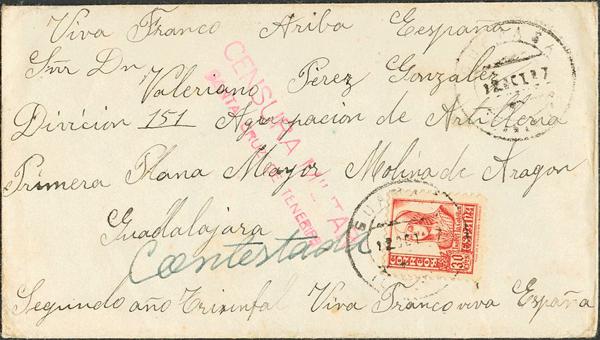 Viva Franco Ariba Eespaña
Snr Dn
Valeriano Perez Gonzalez
Divicion 151 Agrupacion de Artilleria
Primera Plana Mayor Molina de Aragon
Guadlalajara
Contestada
Segundo año Triunfal Viva Franco viva España
CENSURA MILITAR
SANTA CRUZ DE TENERIFE
12 OCT 37
12 OCT
CORREOS
30